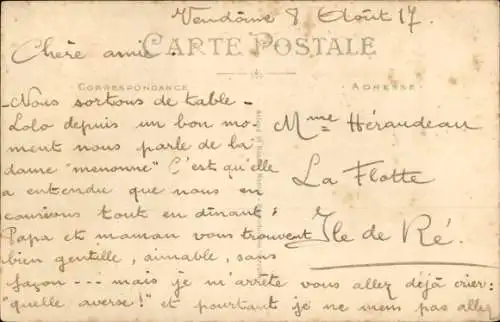 Vendôme 8 Août 17.
CARTE POSTALE
Chère amie
CORRESPONDANCE
ADRESSE
- Nous sortons de table -
Lolo depuis un bon mo-
ment nous parle de la
dame "menonne" C'est qu'elle
a entendu que nous en
causions tout en dînant ;
Papa et maman vous trouvent
bien gentille, aimable, sans
façon --- mais je m'arrête vous allez déjà crier:
"quelle averse!" et pourtant je ne mens pas allez
Mme Héraudeau
La Flotte
Ile de Ré.